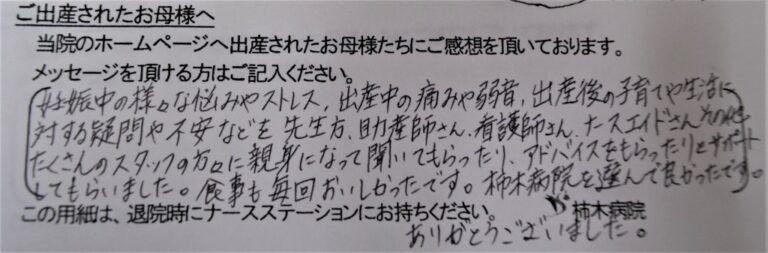 ご出産されたお母様へ
当院のホームページへ出産されたお母様たちにご感想を頂いております。
メッセージを頂ける方はご記入ください。
妊娠中の様々な悩みやストレス、出産中の痛みや弱音、出産後の子育てや生活に
対する疑問や不安などを先生方、助産師さん、看護師さん、ナースエイドさんその他
たくさんのスタッフの方々に親身になって聞いてもらったり、アドバイスをもらったりとサポート
してもらいました。食事も毎回おいしかったです。柿木病院を選んで良かったです。
この用紙は、退院時にナースステーションにお持ちください。 柿木病院
ありがとうございました。